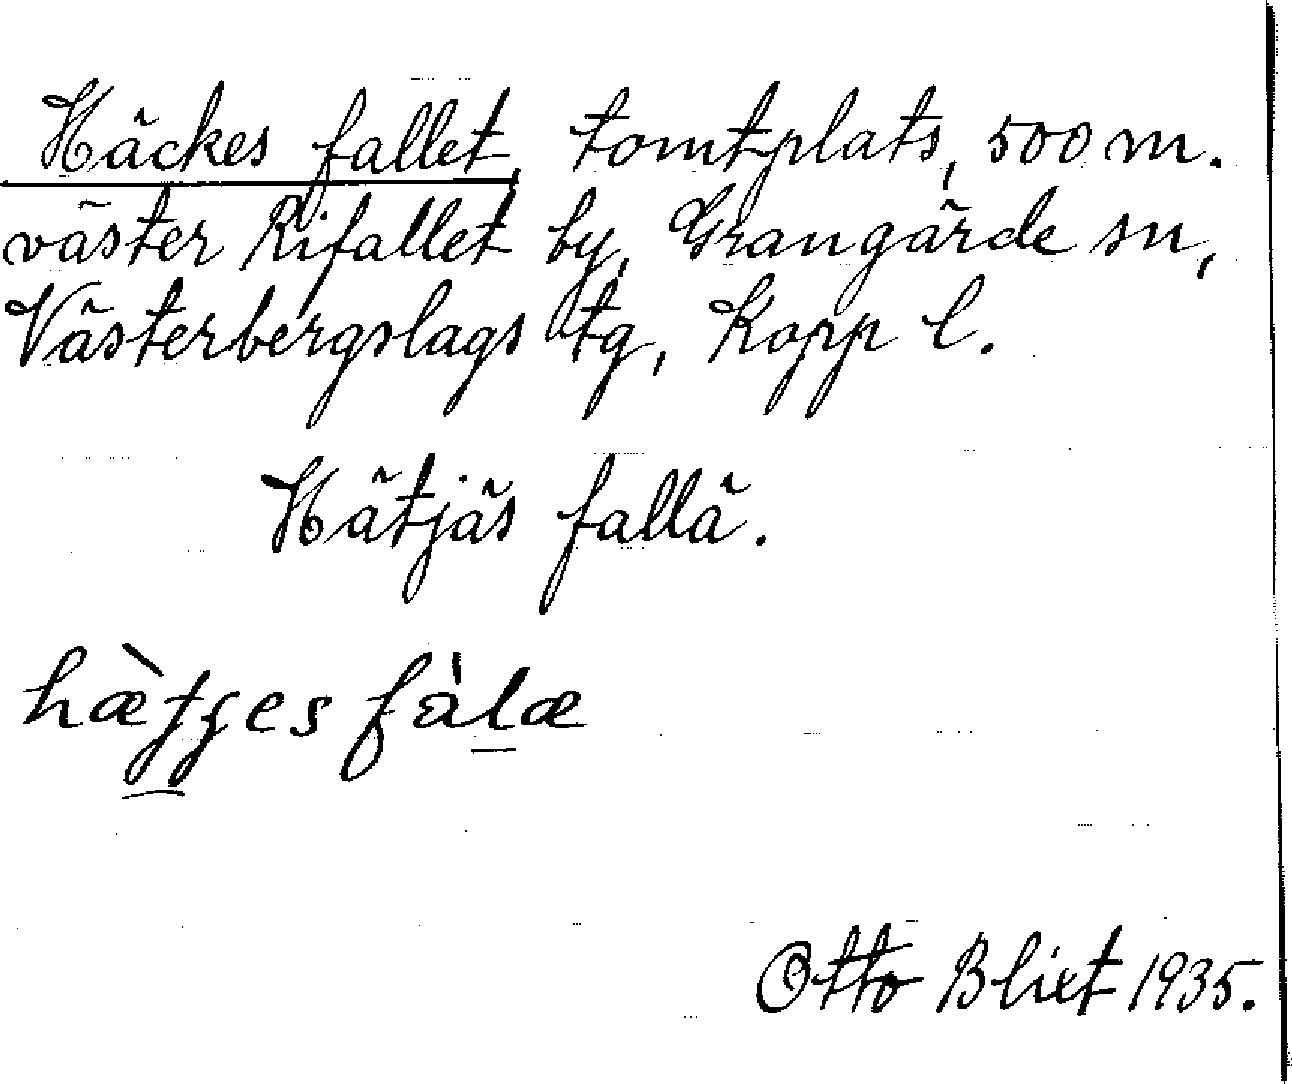 Häckes fallet, tomtplats, 500 m.
väster Rifallet by, Grangärde sn,
Västerbergslags tg, Kopp l.
Hätjäs fallä.
hæ̀tges fàlæ
Otto Blixt 1935.